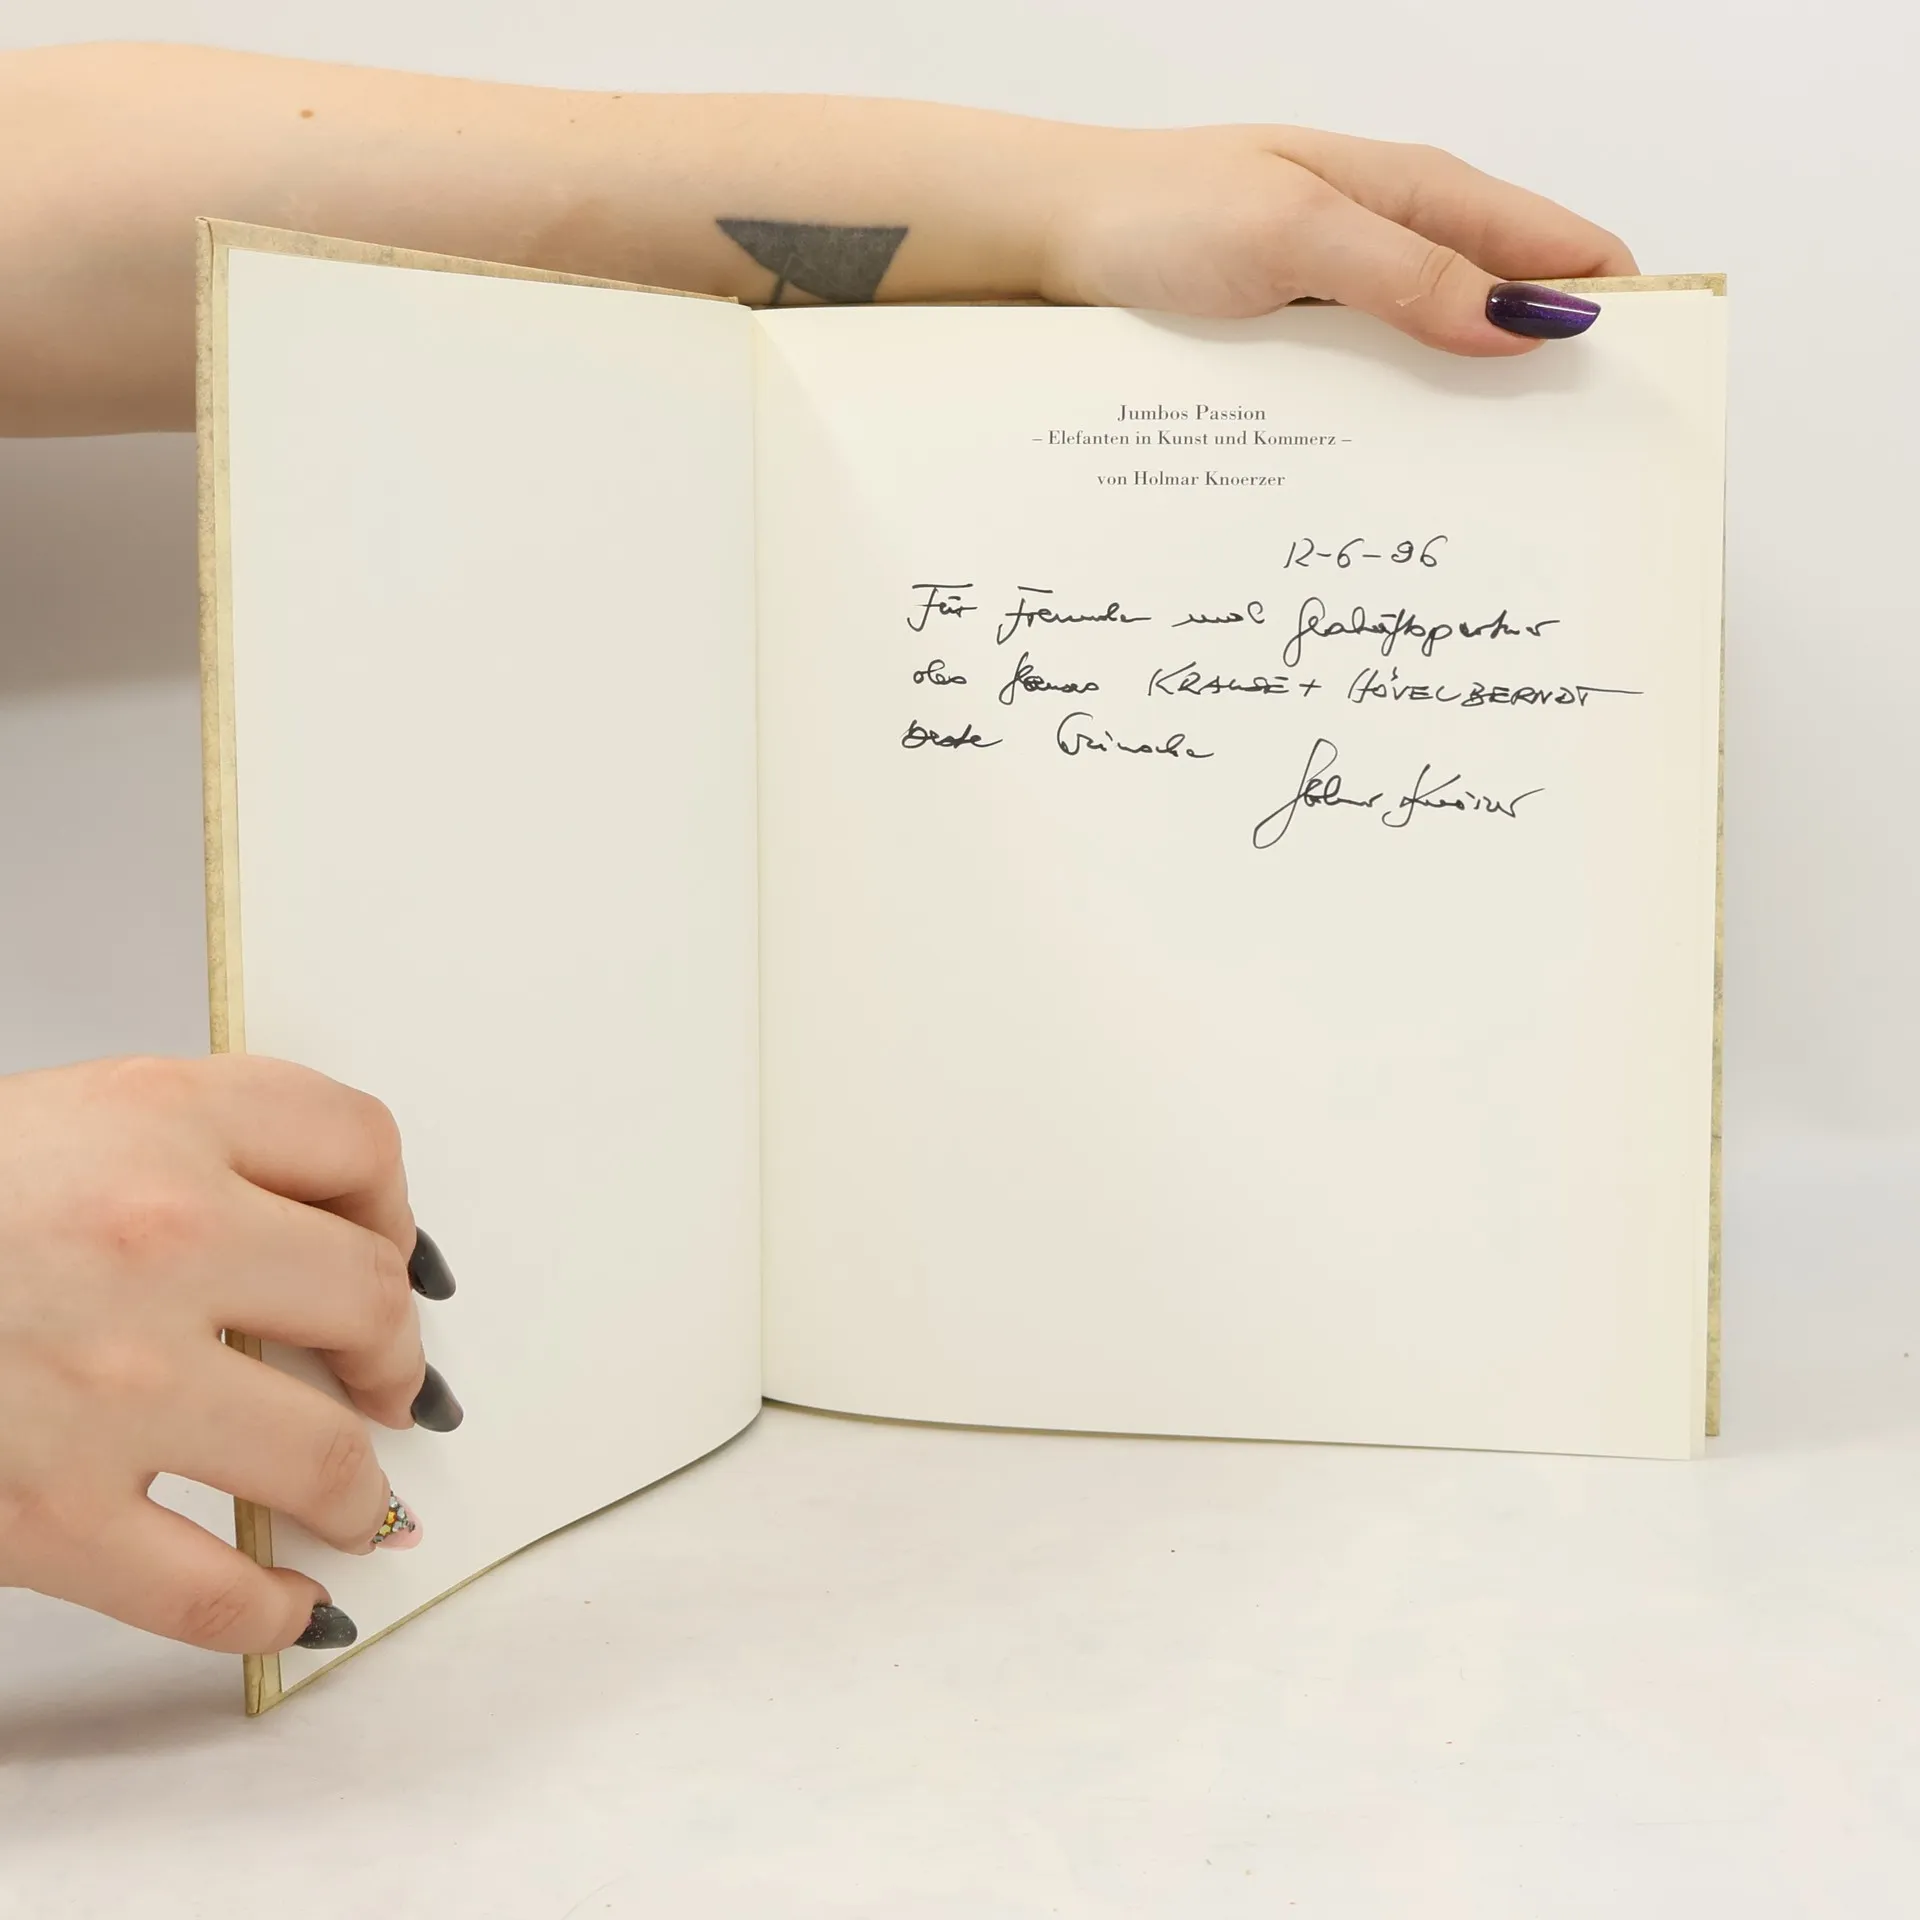 Jumbos Passion
– Elefanten in Kunst und Kommerz –
von Holmar Knoerzer
12-6-96
Für Freunde und Geschäftspartner
des Hauses KRAUSE + HÖVELBERNDT
beste Wünsche
Holmar Knörzer